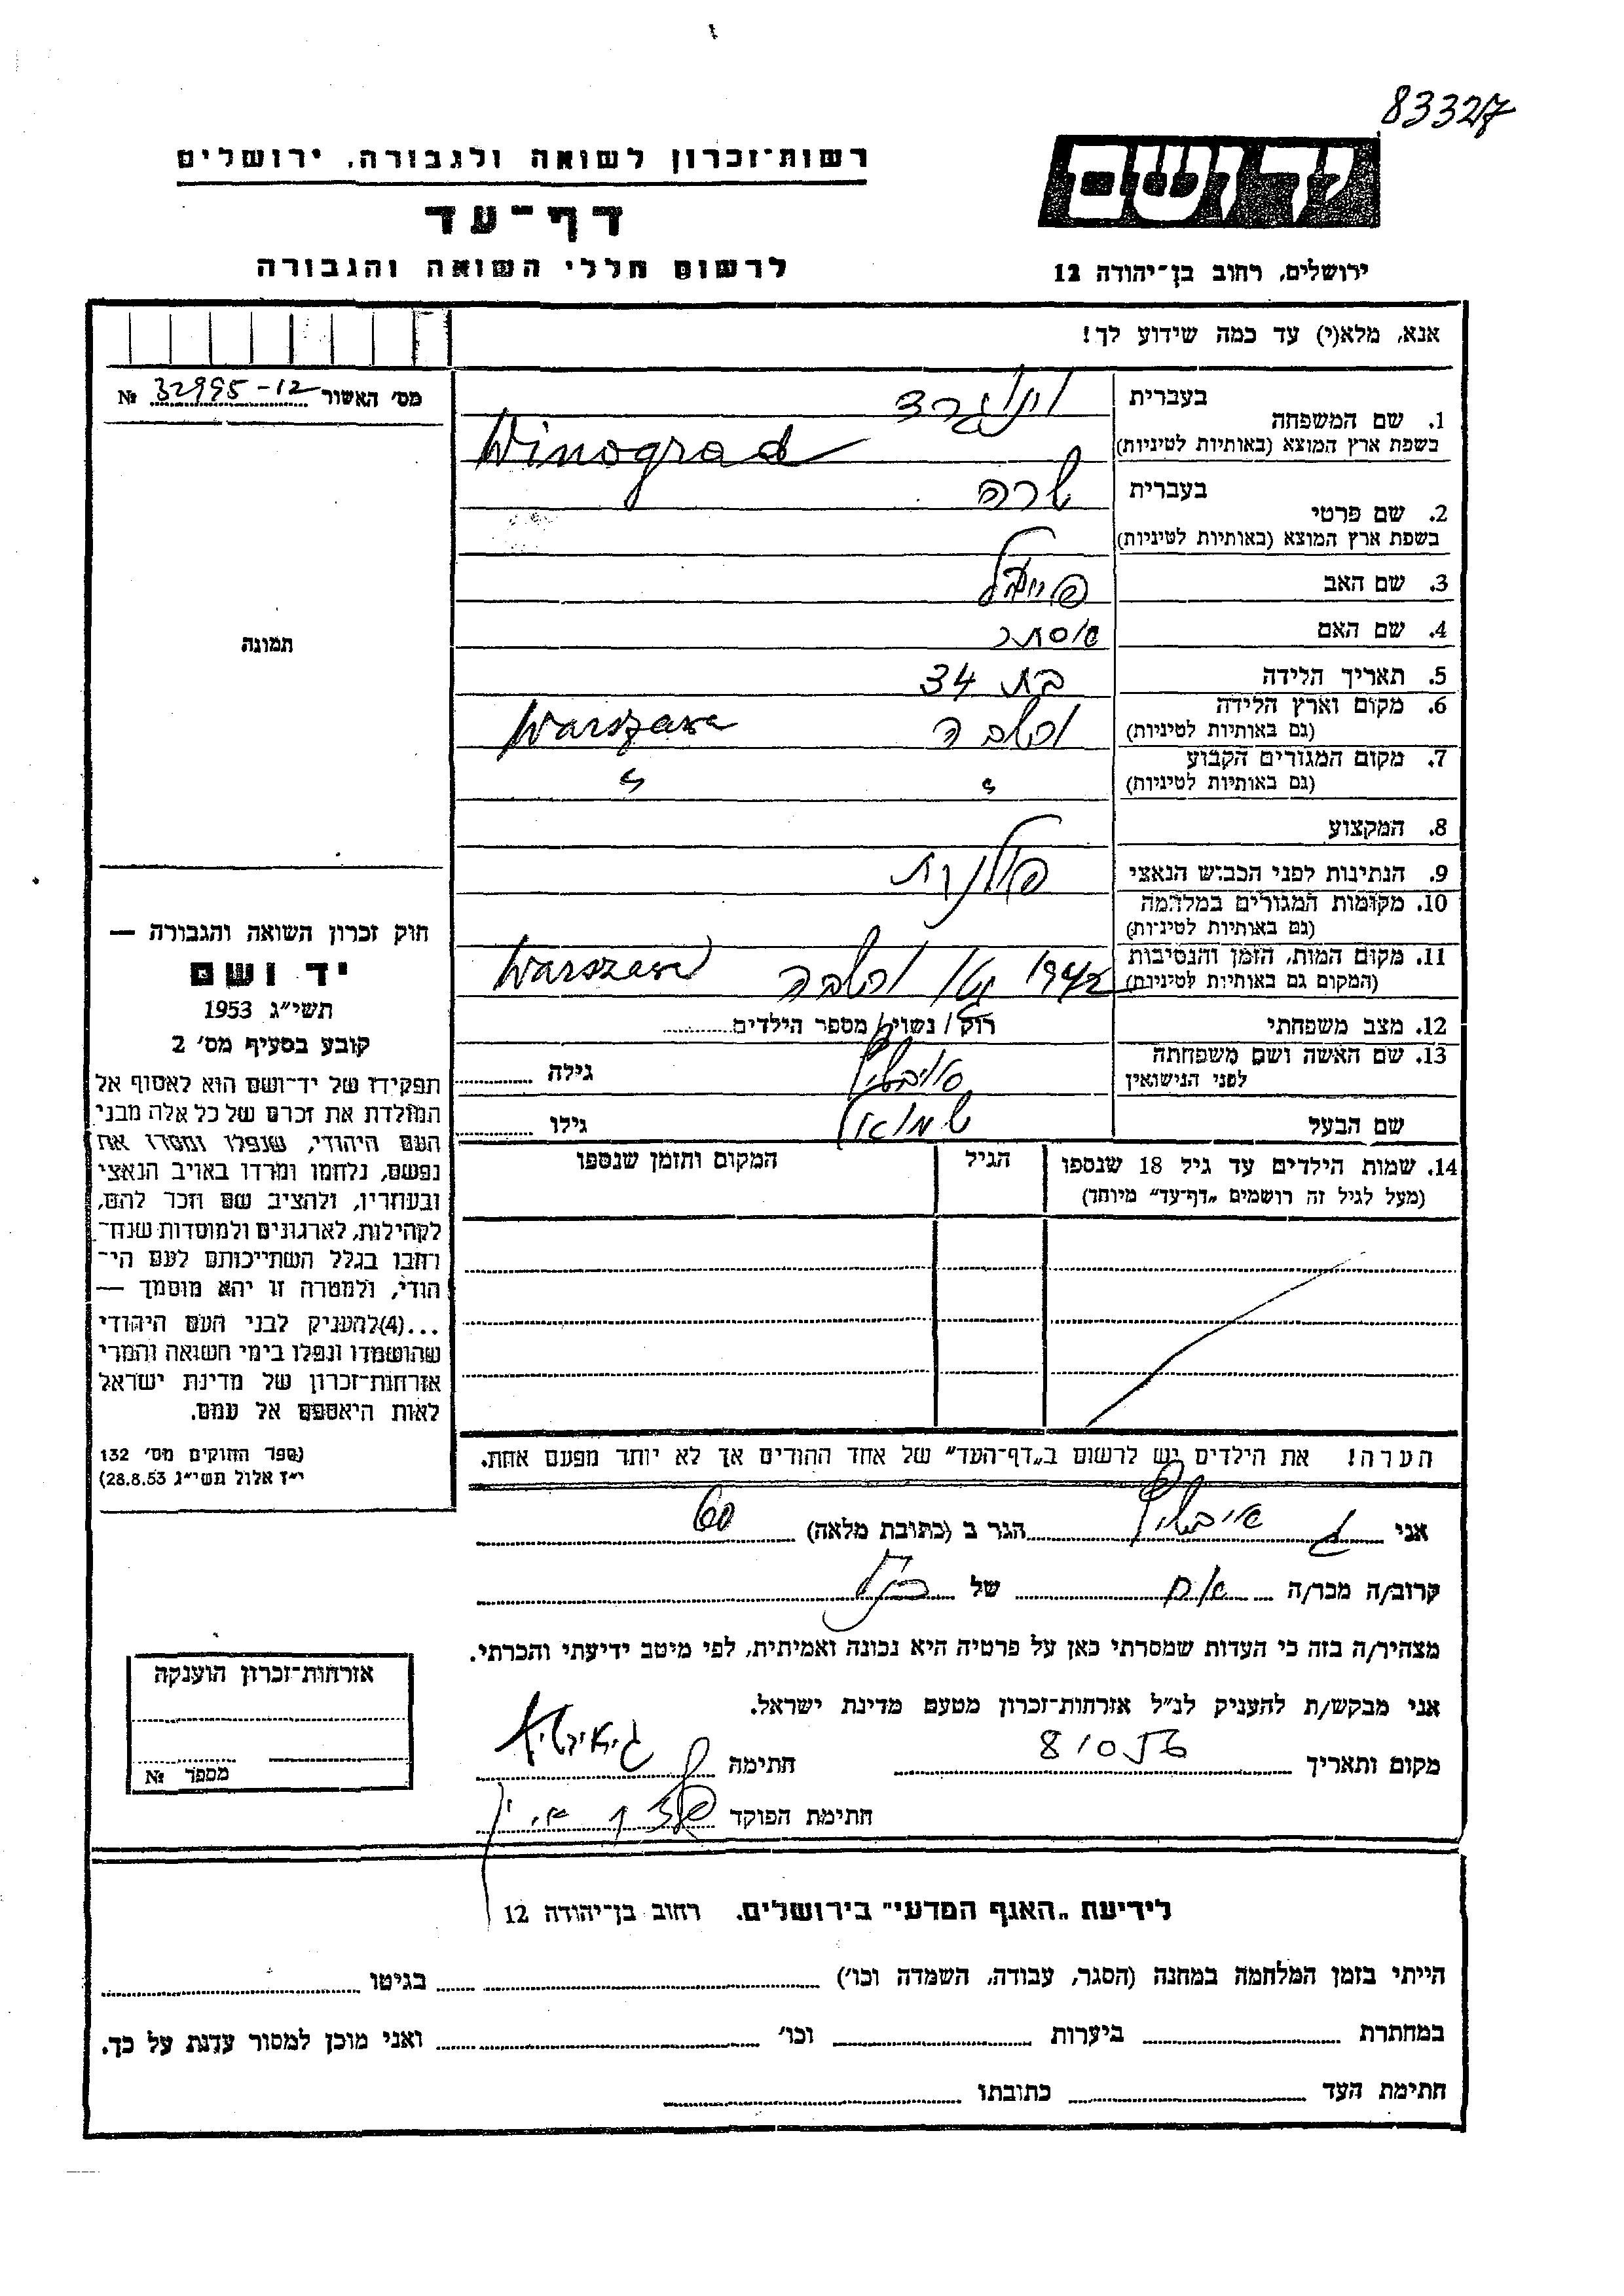 83327
יד ושם
רשות־זכרון לשואה ולגבורה, ירושלים
דף־עד
לרשום חללי השואה והגבורה
ירושלים, רחוב בן־יהודה 12
אנא, מלא(י) עד כמה שידוע לך!
מס׳ האשור 32995-12 №
1. שם המשפחה
בעברית
וינוגרד
בשפת ארץ המוצא (באותיות לטיניות)
Winograd
2. שם פרטי
בעברית
שרה
בשפת ארץ המוצא (באותיות לטיניות)
3. שם האב
4. שם האם אסתר
5. תאריך הלידה בת 34
6. מקום וארץ הלידה
(גם באותיות לטיניות)
ורשבה Warszawa
7. מקום המגורים הקבוע
(גם באותיות לטיניות)
8. המקצוע
9. הנתינות לפני הכבוש הנאצי פולנית
10. מקומות המגורים במלחמה
(גם באותיות לטיניות)
11. מקום המות, הזמן והנסיבות
(המקום גם באותיות לטיניות)
1942 גטו ורשבה Warszawa
12. מצב משפחתי רוק / נשוי / מספר הילדים
13. שם האשה ושם משפחתה
לפני הנישואין
גילה
שם הבעל שמואל גילו
14. שמות הילדים עד גיל 18 שנספו
(מעל לגיל זה רושמים „דף־עד” מיוחד)
הגיל
המקום והזמן שנספו
הערה! את הילדים יש לרשום ב„דף־העד” של אחד ההורים אך לא יותר מפעם אחת.
תמונה
חוק זכרון השואה והגבורה —
יד ושם
תשי״ג 1953
קובע בסעיף מס׳ 2
תפקידו של יד־ושם הוא לאסוף אל
המולדת את זכרם של כל אלה מבני
העם היהודי, שנפלו ומסרו את
נפשם, נלחמו ומרדו באויב הנאצי
ובעוזריו, ולהציב שם וזכר להם,
לקהילות, לארגונים ולמוסדות שנח־
רבו בגלל השתייכותם לעם הי־
הודי, ולמטרה זו יהא מוסמך —
...(4)להעניק לבני העם היהודי
שהושמדו ונפלו בימי השואה והמרי
אזרחות־זכרון של מדינת ישראל
לאות היאספם אל עמם.
(ספר החוקים מס׳ 132
י״ז אלול תשי״ג 28.8.53)
אני הגר ב (כתובת מלאה)
קרוב/ה מכר/ה אח של הנ״ל
מצהיר/ה בזה כי העדות שמסרתי כאן על פרטיה היא נכונה ואמיתית, לפי מיטב ידיעתי והכרתי.
אני מבקש/ת להעניק לנ״ל אזרחות־זכרון מטעם מדינת ישראל.
מקום ותאריך חתימה
חתימת הפוקד
אזרחות־זכרון הוענקה
מספר №
לידיעת „האגף המדעי” בירושלים, רחוב בן־יהודה 12
הייתי בזמן המלחמה במחנה (הסגר, עבודה, השמדה וכו׳) בגיטו
במחתרת ביערות וכו׳ ואני מוכן למסור עדות על כך.
חתימת העד כתובתו